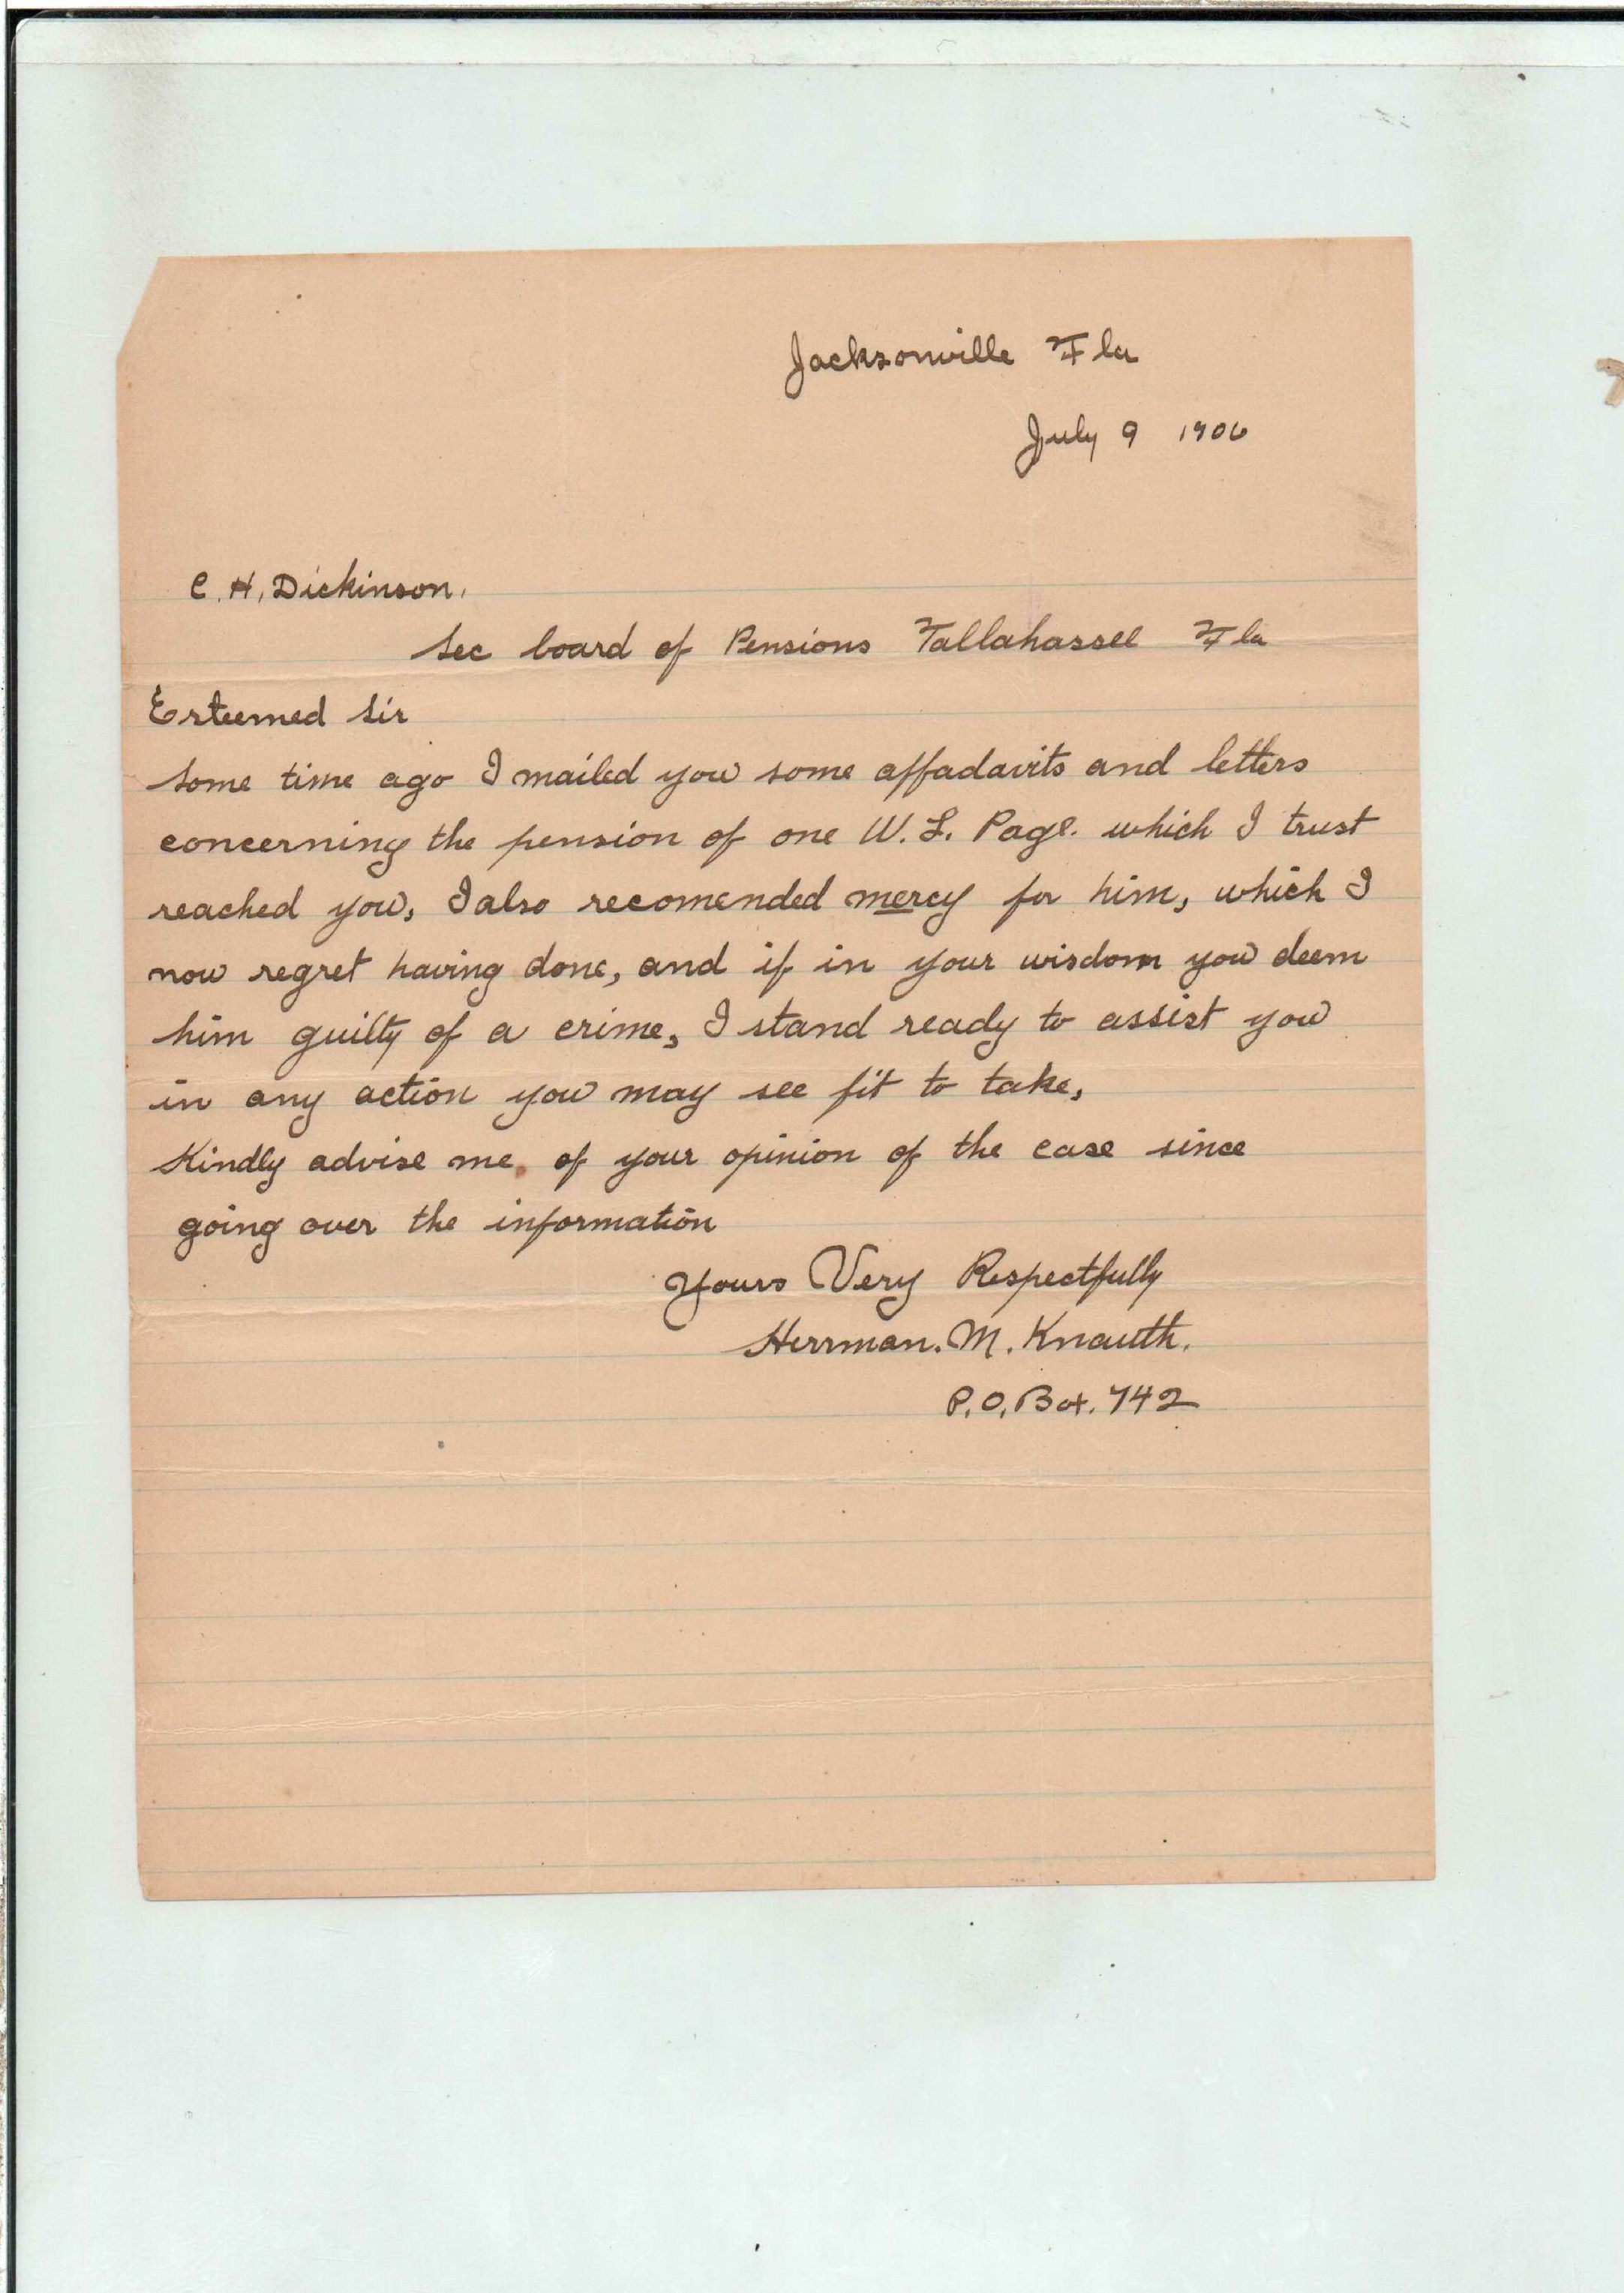 Jacksonville Fla
July 9 1906
C. H. Dickinson.
Sec board of Pensions Tallahassee Fla
Esteemed Sir
Some time ago I mailed you some affadavits and letters
concerning the pension of one W. L. Page. which I trust
reached you, I also recomended mercy for him, which I
now regret having done, and if in your wisdom you deem
him guilty of a crime, I stand ready to assist you
in any action you may see fit to take,
Kindly advise me of your opinion of the case since
going over the information
Yours Very Respectfully
Herrman. M. Knauth.
P. O. Box. 742